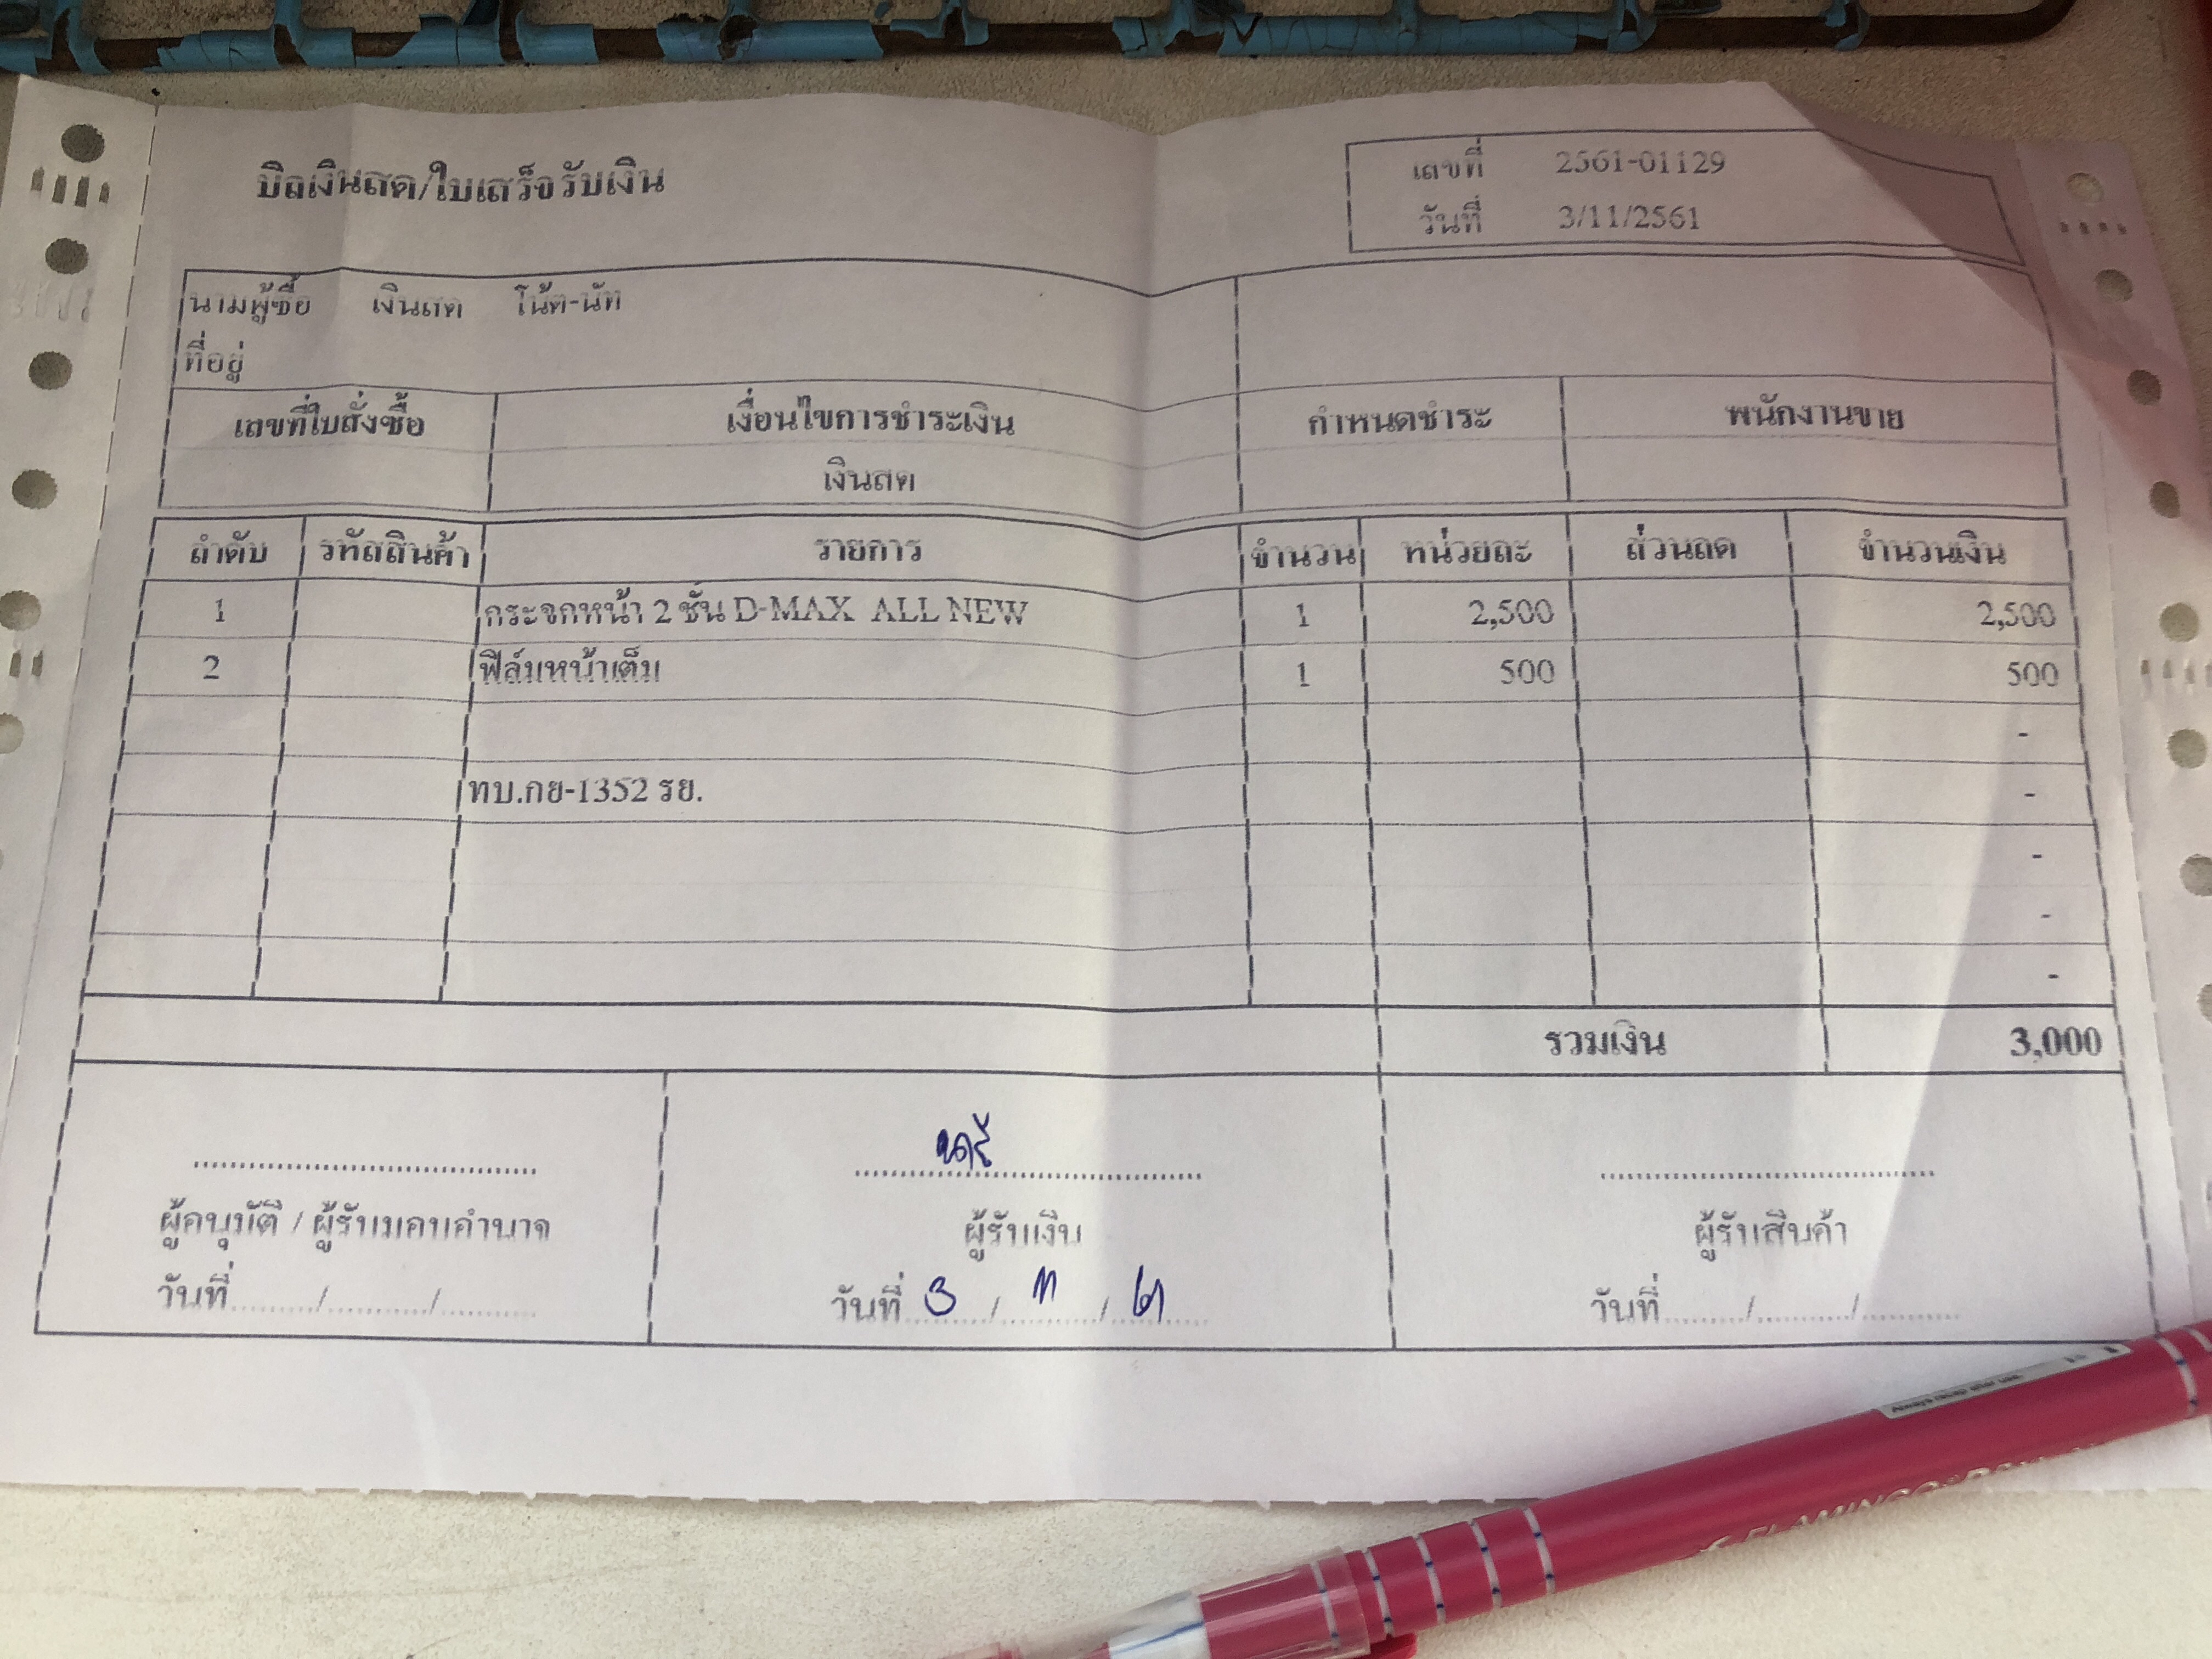 บิลเงินสด/ใบเสร็จรับเงิน
เลขที่ 2561-01129
วันที่ 3/11/2561
นามผู้ซื้อ เงินสด โน้ต-นัท
ที่อยู่
เลขที่ใบสั่งซื้อ เงื่อนไขการชำระเงิน กำหนดชำระ พนักงานขาย
เงินสด
ลำดับ รหัสสินค้า รายการ จำนวน หน่วยละ ส่วนลด จำนวนเงิน
1 กระจกหน้า 2 ชั้น D-MAX ALL NEW 1 2,500 2,500
2 ฟิล์มหน้าเต็ม 1 500 500
-
ทบ.กย-1352 รย. -
-
-
-
รวมเงิน 3,000
ผู้อนุมัติ / ผู้รับมอบอำนาจ ผู้รับเงิน ผู้รับสินค้า
วันที่......../.........../.......... วันที่ 3 / 11 / 61 วันที่......../.........../..........